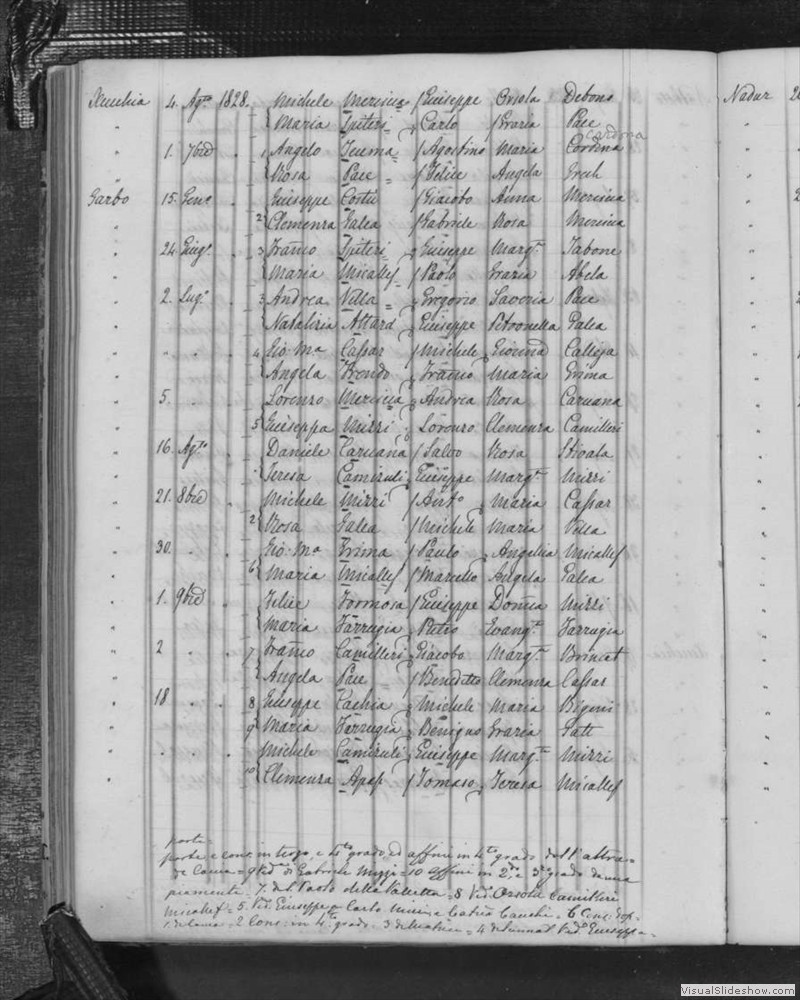 Xeuchia 4. Agto 1828. Michele Mercieca Giuseppe Orsola Debono
" Maria Spiteri Carlo Grazia Pace
" 1. 7bre " 1 Angelo Teuma Agostino Maria Cordina Cardona
" Rosa Pace Felice Angela Grech
Garbo 15. Geno " Giuseppe Costa Giacobo Anna Mercieca
" 2 Clemenza Galea Gabriele Rosa Mercieca
" 24. Giugo " 3 Franco Spiteri Giuseppe Margta Tabone
" Maria Micallef Paolo Grazia Abela
" 2. Lugo " 3 Andrea Vella Gregorio Saveria Pace
" Natalizia Attard Giuseppe Petronella Galea
" " " " 4 Gio: Ma Cassar Michele Gioanna Calleja
" Angela Xrendo Franco Maria Grima
" 5. " " Lorenzo Mercieca Andrea Rosa Caruana
" 5 Giuseppa Mizzi Lorenzo Clemenza Camilleri
" 16. Agto " Daniele Caruana Salvo Rosa
" Teresa Camizuli Giuseppe Margta Mizzi
" 21. 8bre " Michele Mizzi Anto Maria Cassar
" 2 Rosa Galea Michele Maria Vella
" 30. " " Gio: Ma Grima Paulo Angelica Micallef
" 6 Maria Micallef Marcello Angela Galea
" 1. 9bre " Felice Formosa Giuseppe Domca Mizzi
" Maria Farrugia Pietro Evangta Farrugia
" 2 " " 7 Franco Camilleri Giacobo Margta Brincat
" Angela Pace Benedetto Clemenza Cassar
" 18 " " 8 Giuseppe Cachia Michele Maria Bigeni
" 9 Maria Farrugia Benigno Grazia
" " " " Michele Camizuli Giuseppe Margta Mizzi
" 10 Clemenza Apap Tomaso Teresa Micallef
parte
parte e cons. in terzo, e 4to grado ed affini in 4to grado dall'altra
de Cauna = 9 Vda di Gabriele Mizzi = 10 affini in 2do e 3o grado
piamente. 7. del Paolo della Valletta = 8 Vdo Orsola Camilleri
Micallef = 5. Vdo Giuseppe Carlo = 6 Cons.
1. = 2 Cons. in 4to grado = 3 = 4 Vdo Giuseppa
Nadur
VisualSlideshow.com